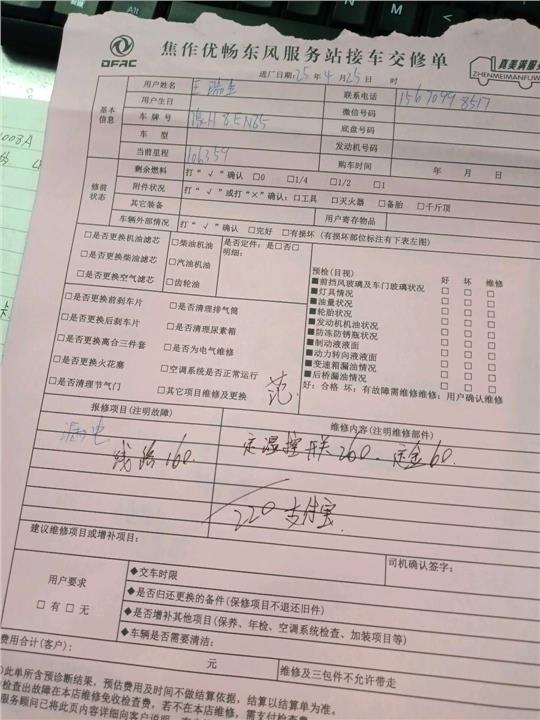 DFAC
焦作优畅东风服务站接车交修单
真美满服务
ZHENMEIMANFUW
进厂日期: 25 年 4 月 25 日 时
基本信息
用户姓名 王瑞
联系电话 156 7099 8517
用户生日
微信号码
车牌号 豫H 8EN65
底盘号码
车 型
发动机号码
当前里程 106359
购车时间 年 月 日
修前状态
剩余燃料 打“√”确认 □0 □1/4 □1/2 □1
附件状况 打“√”或打“×”确认: □工具 □灭火器 □备胎 □千斤顶
其它装备
用户寄存物品
车辆外部情况 打“√”确认 □完好 □有损坏 (有损坏部位标注有下表左图)
□是否更换机油滤芯 □柴油机油 是否定件: 是□否□
□是否更换柴油滤芯 □汽油机油 明细:
□是否更换空气滤芯 □齿轮油
□是否更换前刹车片 □是否清理排气筒
□是否更换后刹车片 □是否清理尿素箱
□是否更换离合三件套 □是否为电气维修
□是否更换火花塞 □空调系统是否正常运行
□是否清理节气门 □其它项目维修及更换
范
预检(目视) 好 坏 维修
■前挡风玻璃及车门玻璃状况 □ □ □
■灯具情况 □ □ □
■油量状况 □ □ □
■轮胎状况 □ □ □
■发动机机油状况 □ □ □
■防冻防锈瓶状况 □ □ □
■制动液液面 □ □ □
■动力转向液液面 □ □ □
■变速箱漏油情况 □ □ □
■后桥漏油情况 □ □ □
好: 合格 坏: 有故障需维修维修: 用户确认维修
报修项目(注明故障)
维修内容(注明维修部件)
漏电
线路160.
定湿控开关260. 定金60.
220支付宝
建议维修项目或增补项目:
司机确认签字:
用户要求
□有 □无
◆交车时限
◆是否归还更换的备件(保修项目不退还旧件)
◆是否增补其他项目(保养、年检、空调系统检查、加装项目等)
◆车辆是否需要清洁:
费用合计(客户): 元
维修及三包件不允许带走
)此单所含预诊断结果, 预估费用及时间不做结算依据, 结算以结算单为准。
检查出故障在本店维修免收检查费, 若不在本店维修, 需支付检查费
服务顾问已将此页内容详细向客户说明